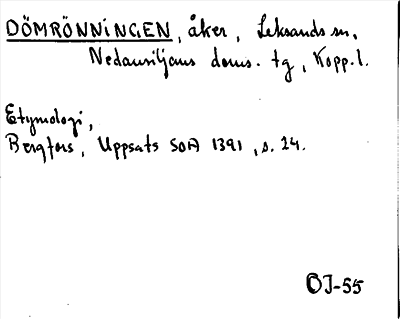 DÖMRÖNNINGEN, åker, Leksands sn,
Nedansiljans doms. tg, Kopp. l.
Etymologi,
Bergfors, Uppsats SOA 1391, s. 24.
OJ-55